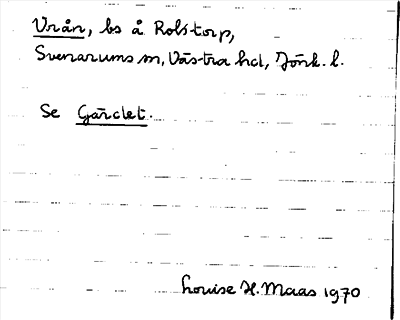 Vrån, bs å Rolstorp,
Svenarums sn, Västra hd, Jönk. l.
Se Gärdet.
Louise H. Maas 1970